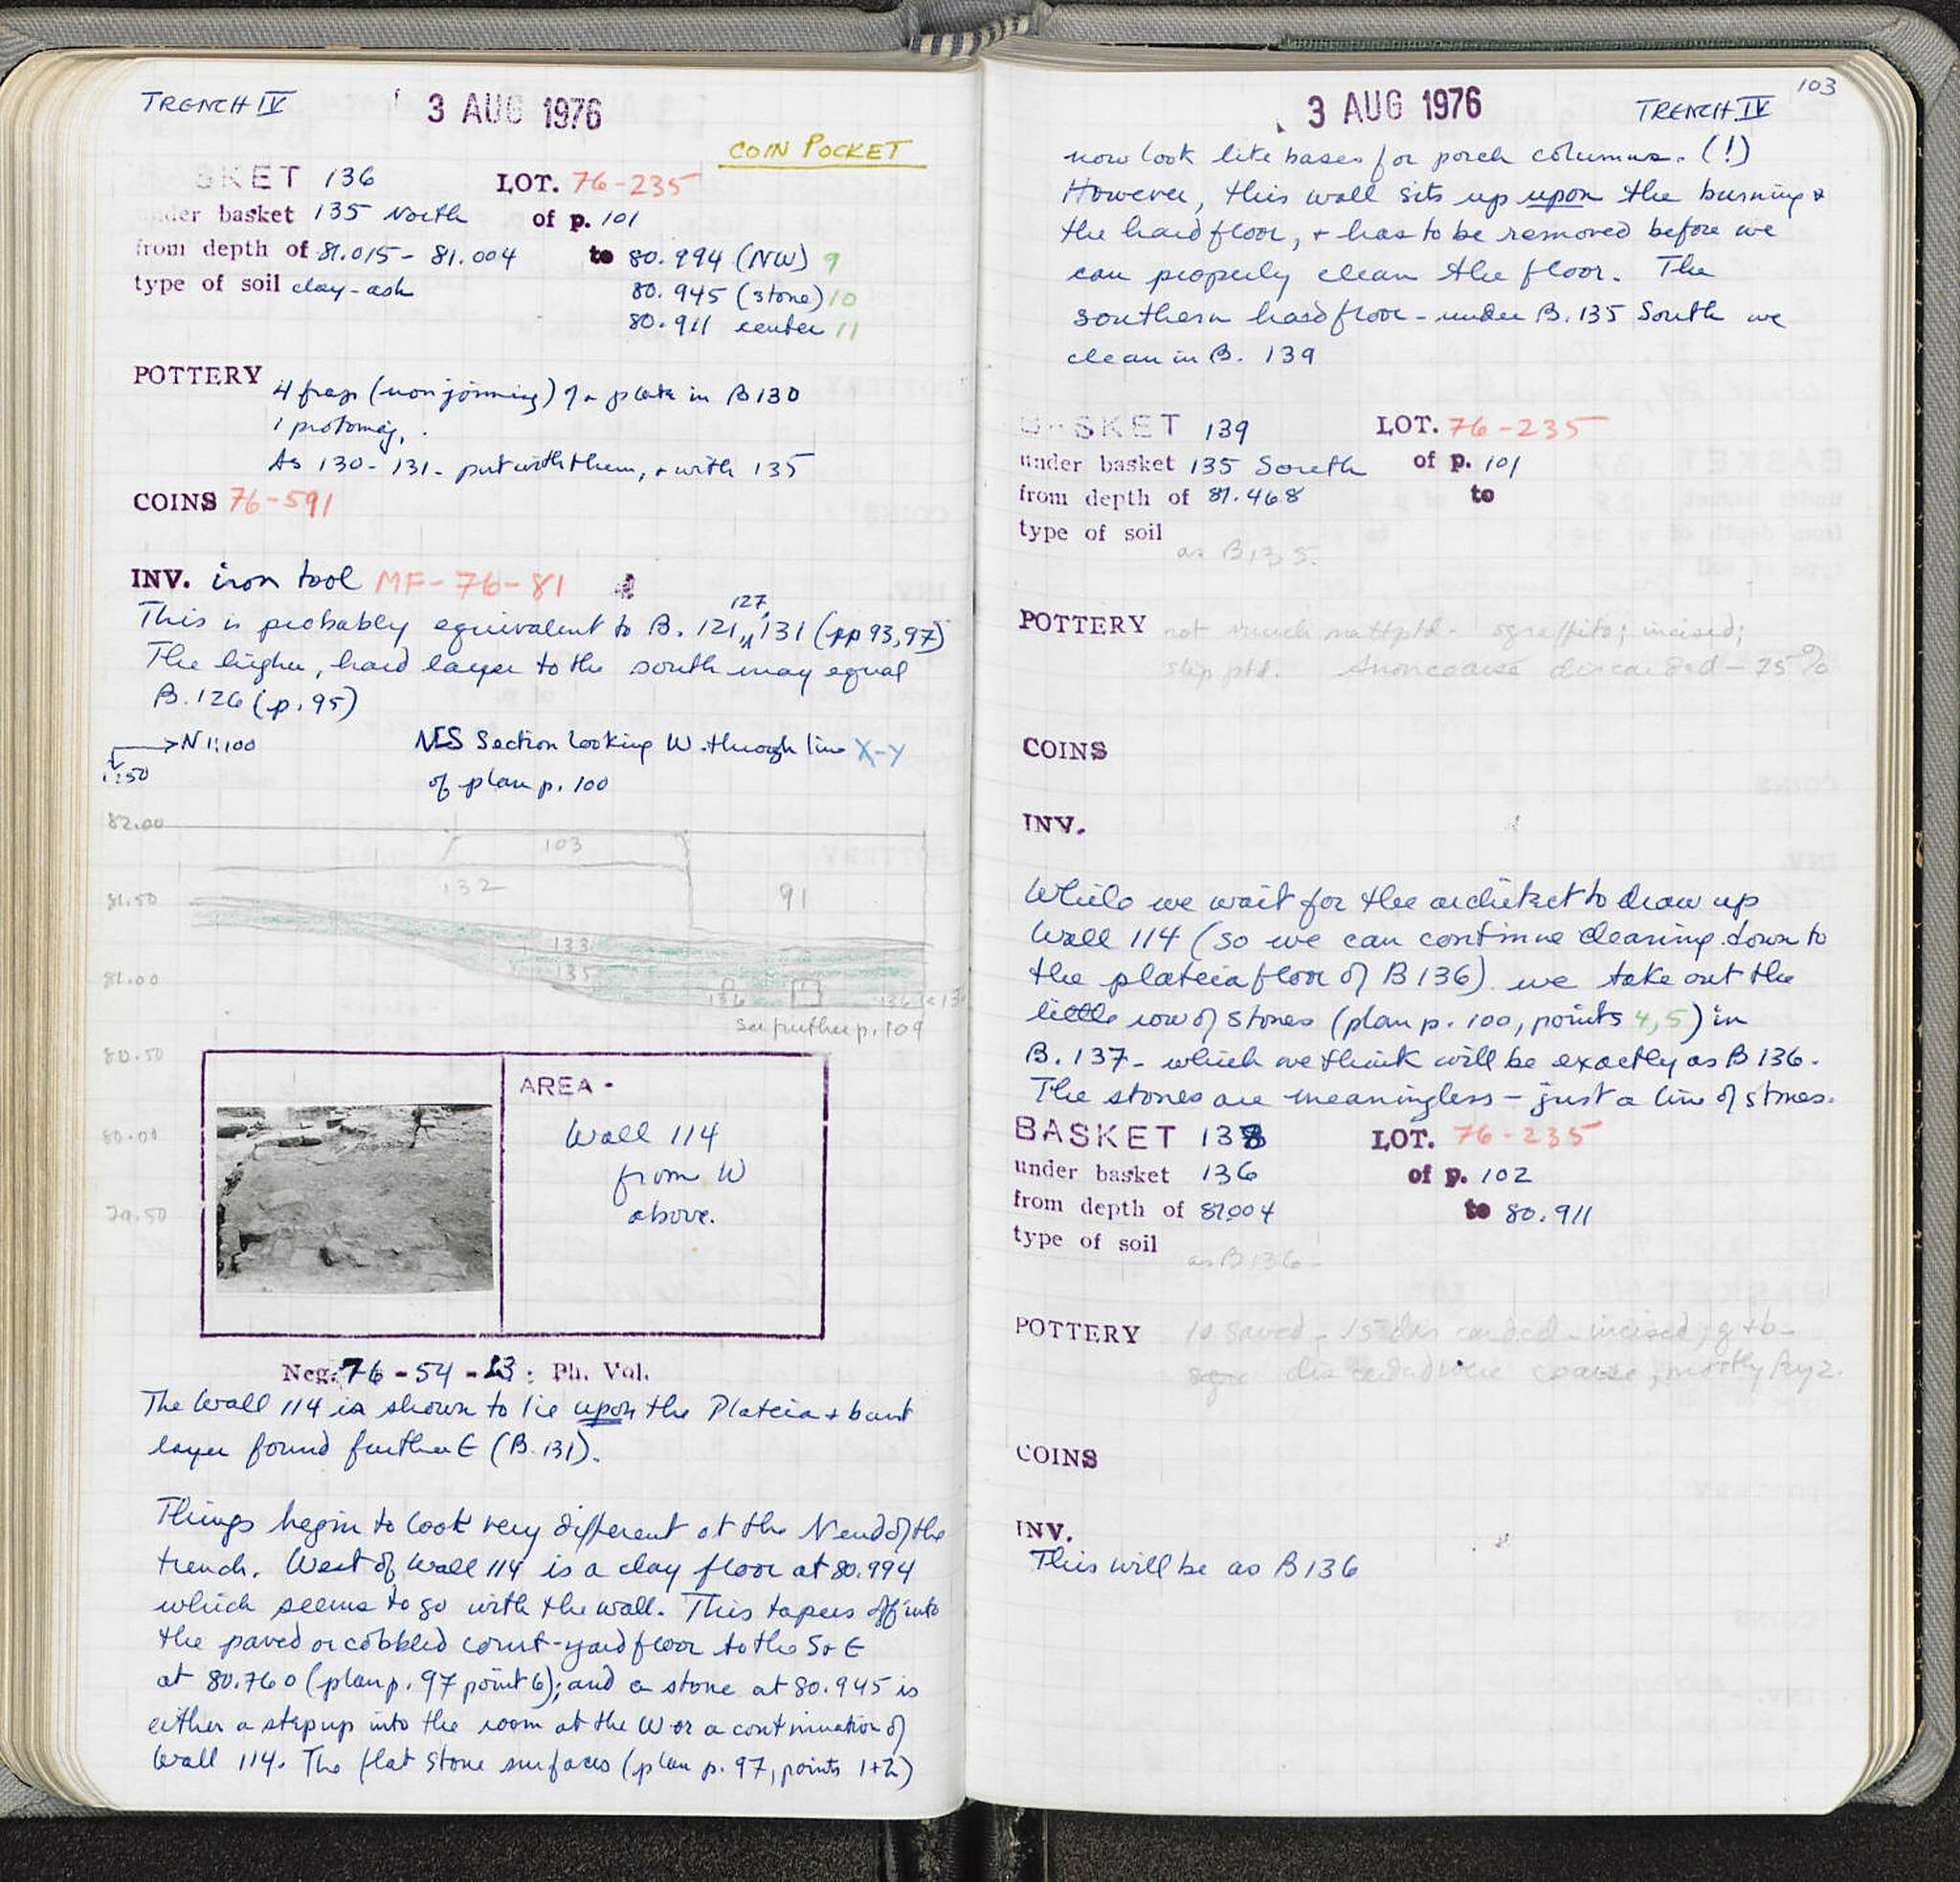 TRENCH IV
3 AUG 1976
COIN POCKET
SKET 136 LOT. 76-235
under basket 135 North of p. 101
from depth of 81.015 - 81.004 to 80.994 (NW) 9
type of soil clay-ash 80.945 (stone) 10
80.911 center 11
POTTERY 4 frags (non joining) of a plate in B130
1 protomaj.
As 130-131- put with them, + with 135
COINS 76-591
INV. iron tool MF-76-81
This is probably equivalent to B. 121, 127, 131 (pp 93, 97)
The higher, hard layer to the south may equal
B. 126 (p. 95)
N 1:100
1:50
NS Section looking W. through line X-Y
of plan p. 100
82.00
103
132
91
81.50
133
135
81.00
136
136
see further p. 109
80.50
80.00
79.50
AREA -
Wall 114
from W
above.
Neg. 76-54-13: Ph. Vol.
The Wall 114 is shown to lie upon the Plateia + burnt
layer found further E (B. 131).
Things begin to look very different at the N end of the
trench. West of Wall 114 is a clay floor at 80.994
which seems to go with the wall. This tapers off into
the paved or cobbled court-yard floor to the S + E
at 80.760 (plan p. 97 point 6); and a stone at 80.945 is
either a step up into the room at the W or a continuation of
Wall 114. The flat stone surfaces (plan p. 97, points 1+2)
103
3 AUG 1976
TRENCH IV
now look like bases for porch columns. (!)
However, this wall sits up upon the burning +
the hard floor, + has to be removed before we
can properly clean the floor. The
southern hard floor - under B. 135 South we
clean in B. 139
BASKET 139 LOT. 76-235
under basket 135 South of p. 101
from depth of 81.468 to
type of soil
as B135.
POTTERY not much matt ptd - sgraffito; incised;
slip ptd. coarse discarded - 75%
COINS
INV.
While we wait for the architect to draw up
Wall 114 (so we can continue clearing down to
the plateia floor of B 136) we take out the
little row of stones (plan p. 100, points 4, 5) in
B. 137 - which we think will be exactly as B 136.
The stones are meaningless - just a line of stones.
BASKET 138 LOT. 76-235
under basket 136 of p. 102
from depth of 81.004 to 80.911
type of soil
as B136-
POTTERY 10 saved - 15 discarded - incised, g+b-
discarded were coarse, mostly
COINS
INV.
This will be as B 136